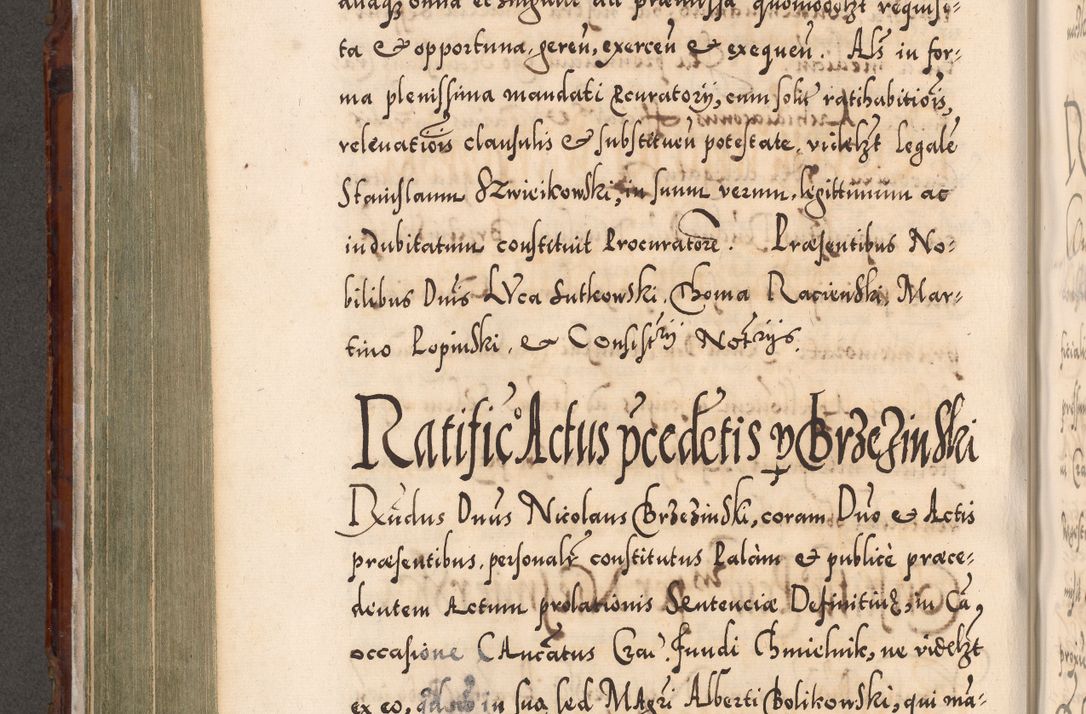 aliaq; omnia et singula ad præmissa quomodolzt requise-
ta & opportuna, gereñ, exerceñ & exequeñ. Als in for-
ma plenissima mandati Pcuratorij, cum solit ratihabitiõis,
relevatiõis clausulis & substitueñ potestate, videlzt Legalẽ
Stanislaum Szwieikowski, in suum verum, legittimum ac
indubitatum constituit Procuratorẽ. Præsentibus No-
bilibus Dnĩs LVca Sutkowski, Thoma Racieński, Mar-
tino Lopinski, & Consistrij Notrijs.
Ratificº Actus pcedẽtis p Brzezinski
Rñdus Dnũs Nicolaus Brzezinski, coram Dnõ & Actis
præsentibus, personalr̃ constitutus Palàm & publicè præce-
dentem Actum prolationis Sentenciæ Definitiuæ, in Cã,
occasione CAucãtus Crac. fundi Chmielnik, ne videlzt
ex eo, in sua sed MAgrĩ Alberti Bolikowski, qui mã-